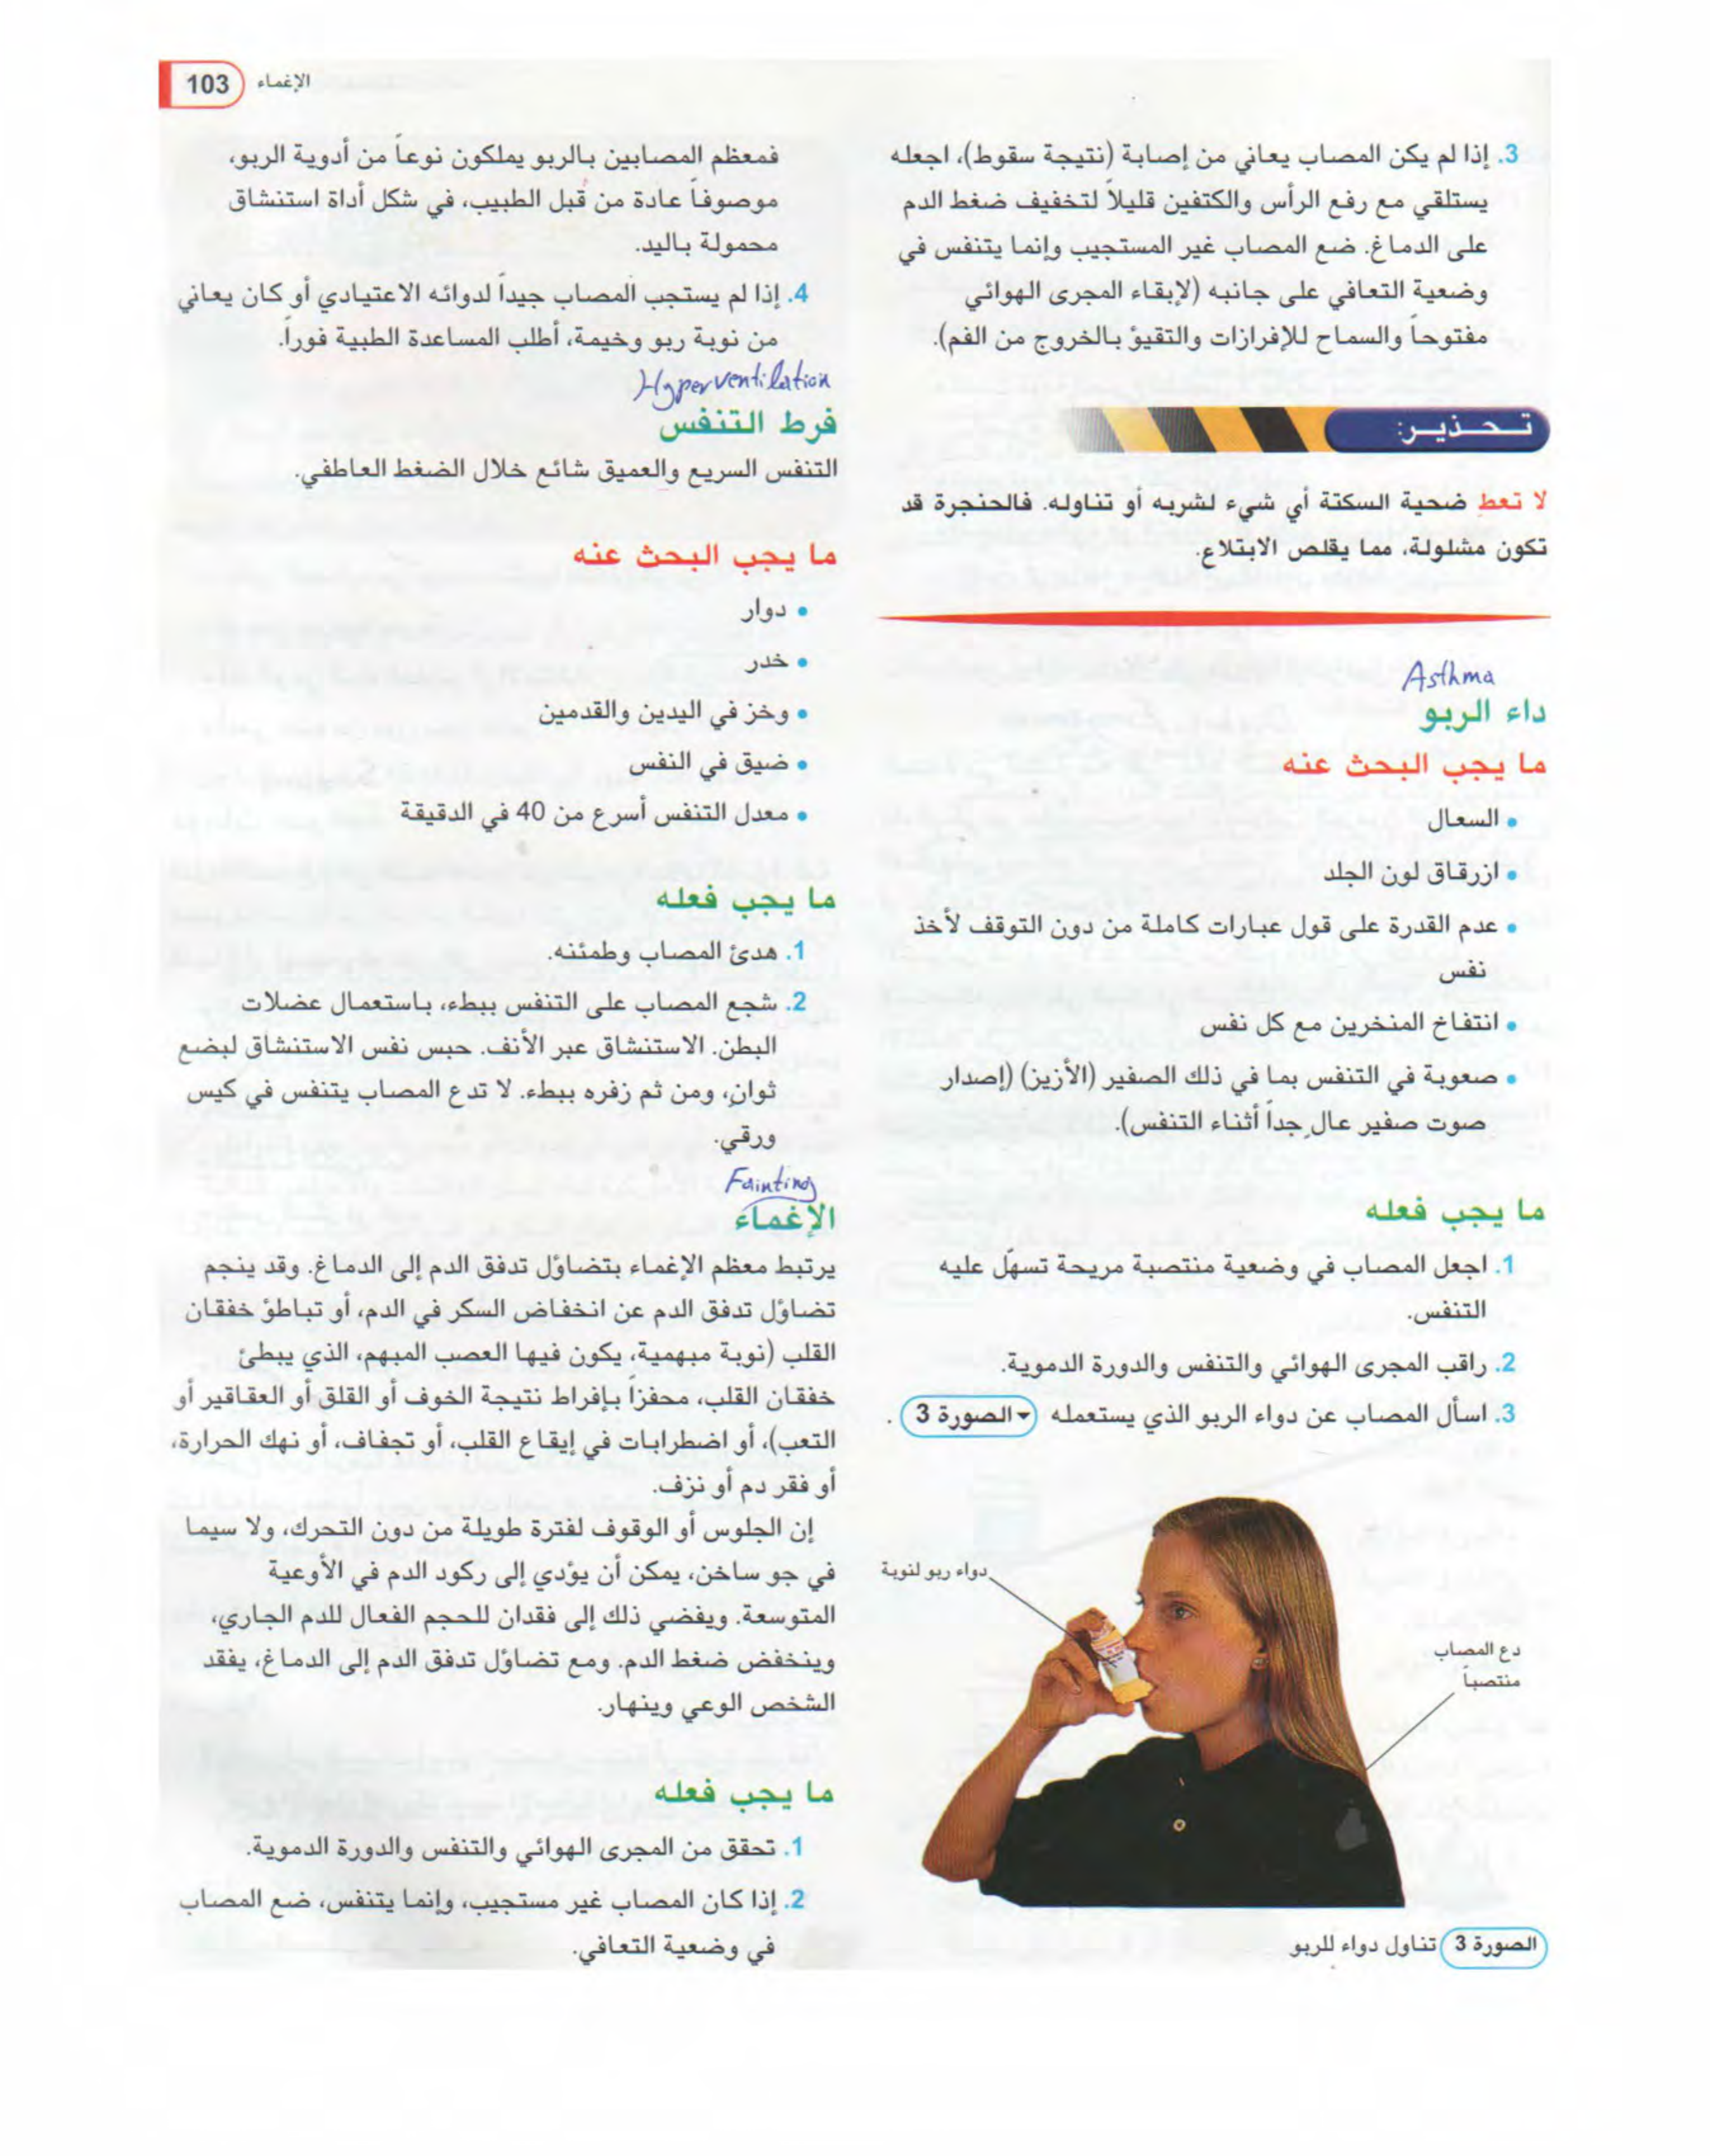 103 الإغماء
3. إذا لم يكن المصاب يعاني من إصابة (نتيجة سقوط)، اجعله
يستلقي مع رفع الرأس والكتفين قليلاً لتخفيف ضغط الدم
على الدماغ. ضع المصاب غير المستجيب وإنما يتنفس في
وضعية التعافي على جانبه (لإبقاء المجرى الهوائي
مفتوحاً والسماح للإفرازات والتقيؤ بالخروج من الفم).
تـحـذيـر:
لا تعطِ ضحية السكتة أي شيء لشربه أو تناوله. فالحنجرة قد
تكون مشلولة، مما يقلص الابتلاع.
Asthma
داء الربو
ما يجب البحث عنه
• السعال
• ازرقاق لون الجلد
• عدم القدرة على قول عبارات كاملة من دون التوقف لأخذ
نفس
• انتفاخ المنخرين مع كل نفس
• صعوبة في التنفس بما في ذلك الصفير (الأزيز) (إصدار
صوت صفير عالٍ جداً أثناء التنفس).
ما يجب فعله
1. اجعل المصاب في وضعية منتصبة مريحة تسهّل عليه
التنفس.
2. راقب المجرى الهوائي والتنفس والدورة الدموية.
3. اسأل المصاب عن دواء الربو الذي يستعمله الصورة 3 .
دواء ربو لنوبة
دع المصاب
منتصباً
الصورة 3 تناول دواء للربو
فمعظم المصابين بالربو يملكون نوعاً من أدوية الربو،
موصوفاً عادة من قبل الطبيب، في شكل أداة استنشاق
محمولة باليد.
4. إذا لم يستجب المصاب جيداً لدوائه الاعتيادي أو كان يعاني
من نوبة ربو وخيمة، أطلب المساعدة الطبية فوراً.
Hyperventilation
فرط التنفس
التنفس السريع والعميق شائع خلال الضغط العاطفي.
ما يجب البحث عنه
• دوار
• خدر
• وخز في اليدين والقدمين
• ضيق في النفس
• معدل التنفس أسرع من 40 في الدقيقة
ما يجب فعله
1. هدئ المصاب وطمئنه.
2. شجع المصاب على التنفس ببطء، باستعمال عضلات
البطن. الاستنشاق عبر الأنف. حبس نفس الاستنشاق لبضع
ثوانٍ، ومن ثم زفره ببطء. لا تدع المصاب يتنفس في كيس
ورقي.
Fainting
الإغماء
يرتبط معظم الإغماء بتضاؤل تدفق الدم إلى الدماغ. وقد ينجم
تضاؤل تدفق الدم عن انخفاض السكر في الدم، أو تباطؤ خفقان
القلب (نوبة مبهمية، يكون فيها العصب المبهم، الذي يبطئ
خفقان القلب، محفزاً بإفراط نتيجة الخوف أو القلق أو العقاقير أو
التعب)، أو اضطرابات في إيقاع القلب، أو تجفاف، أو نهك الحرارة،
أو فقر دم أو نزف.
إن الجلوس أو الوقوف لفترة طويلة من دون التحرك، ولا سيما
في جو ساخن، يمكن أن يؤدي إلى ركود الدم في الأوعية
المتوسعة. ويفضي ذلك إلى فقدان للحجم الفعال للدم الجاري،
وينخفض ضغط الدم. ومع تضاؤل تدفق الدم إلى الدماغ، يفقد
الشخص الوعي وينهار.
ما يجب فعله
1. تحقق من المجرى الهوائي والتنفس والدورة الدموية.
2. إذا كان المصاب غير مستجيب، وإنما يتنفس، ضع المصاب
في وضعية التعافي.